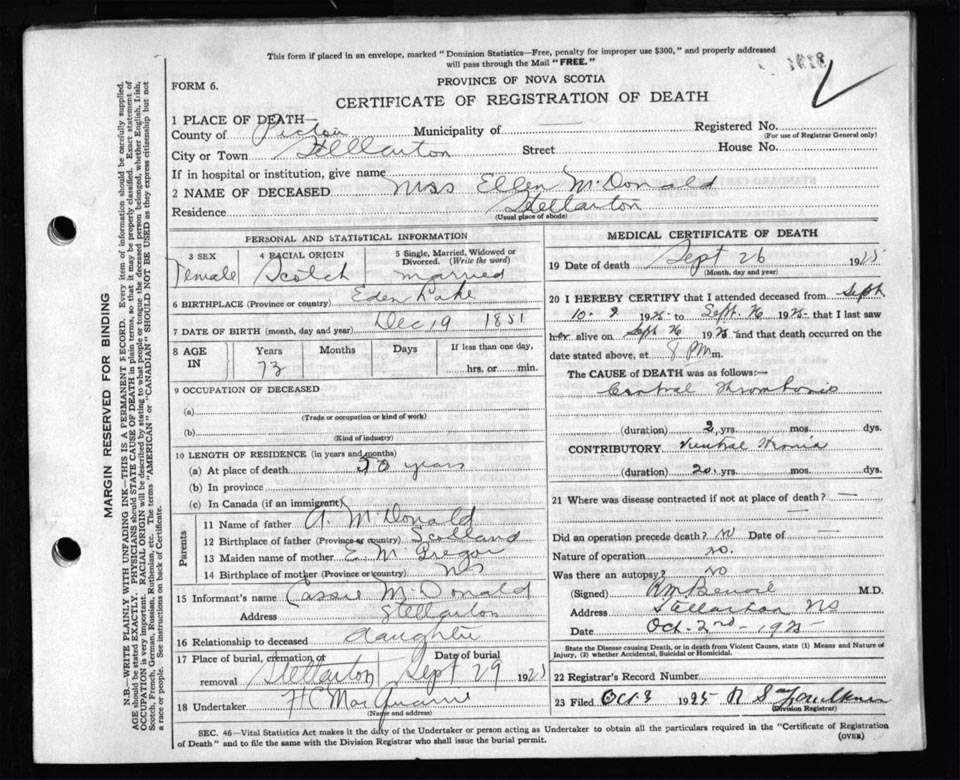 This form if placed in an envelope, marked "Dominion Statistics—Free, penalty for improper use $300," and properly addressed
will pass through the Mail "FREE."
FORM 6.
PROVINCE OF NOVA SCOTIA
CERTIFICATE OF REGISTRATION OF DEATH
1 PLACE OF DEATH—
County of Pictou Municipality of — Registered No.
(For use of Registrar General only)
City or Town Stellarton Street House No.
If in hospital or institution, give name
2 NAME OF DECEASED Mrs Ellen McDonald
Residence Stellarton
(Usual place of abode)
PERSONAL AND STATISTICAL INFORMATION
3 SEX Female
4 RACIAL ORIGIN Scotch
5 Single, Married, Widowed or Divorced. (Write the word) married
6 BIRTHPLACE (Province or country) Eden Lake
7 DATE OF BIRTH (month, day and year) Dec 19 1851
8 AGE IN Years 73 Months Days If less than one day, hrs. or min.
9 OCCUPATION OF DECEASED
(a)
(Trade or occupation or kind of work)
(b)
(Kind of industry)
10 LENGTH OF RESIDENCE (in years and months)
(a) At place of death 50 years
(b) In province
(c) In Canada (if an immigrant)
Parents
11 Name of father A. McDonald
12 Birthplace of father (Province or country) Scotland
13 Maiden name of mother E. McGregor
14 Birthplace of mother (Province or country) NS
15 Informant's name Cassie McDonald
Address Stellarton
16 Relationship to deceased daughter
17 Place of burial, cremation or removal Stellarton Date of burial Sept 29 1925
18 Undertaker H C MacQuarrie
(Name and address)
MEDICAL CERTIFICATE OF DEATH
19 Date of death Sept 26 1925
(Month, day and year)
20 I HEREBY CERTIFY that I attended deceased from Sept
10 1925 to Sept. 26 1925 that I last saw
her alive on Sept 26 1925 and that death occurred on the
date stated above, at 8 PM m.
The CAUSE of DEATH was as follows:—
Thrombosis
(duration) 2 yrs. mos. dys.
CONTRIBUTORY Ventral Hernia
(duration) 20 yrs. mos. dys.
21 Where was disease contracted if not at place of death? —
Did an operation precede death? NO Date of —
Nature of operation no.
Was there an autopsy? NO
(Signed) RM Benvie M.D.
Address Stellarton NS
Date Oct. 2nd - 1925
State the Disease causing Death, or in death from Violent Causes, state (1) Means and Nature of
Injury, (2) whether Accidental, Suicidal or Homicidal.
22 Registrar's Record Number
23 Filed Oct 3 1925 Faulkner
(Division Registrar)
SEC. 46—Vital Statistics Act makes it the duty of the Undertaker or person acting as Undertaker to obtain all the particulars required in the "Certificate of Registration
of Death" and to file the same with the Division Registrar who shall issue the burial permit. (OVER)
MARGIN RESERVED FOR BINDING
N.B.—WRITE PLAINLY WITH UNFADING INK—THIS IS A PERMANENT RECORD. Every item of information should be carefully supplied.
AGE should be stated EXACTLY. PHYSICIANS should STATE CAUSE OF DEATH in plain terms, so that it may be properly classified. Exact statement of
OCCUPATION is very important. RACIAL ORIGIN will be described by stating to what people or tongue the deceased person belonged, whether English, Irish,
Scotch, French, German, Russian, Ruthenian, etc. The terms "AMERICAN" or "CANADIAN" SHOULD NOT BE USED as they express citizenship but not
a race or people. See instructions on back of Certificate.